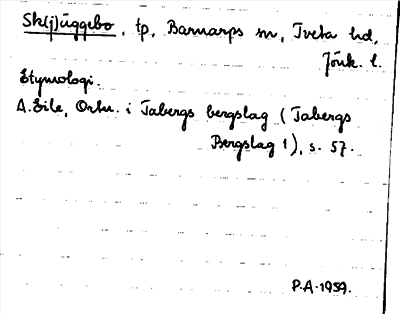 Sk(j)uggebo, tp, Barnarps sn, Tveta hd,
Jönk. l.
Etymologi.
A. Eile, Ortn. i Tabergs bergslag (Tabergs
Bergslag 1), s. 57.
P.A. 1959.